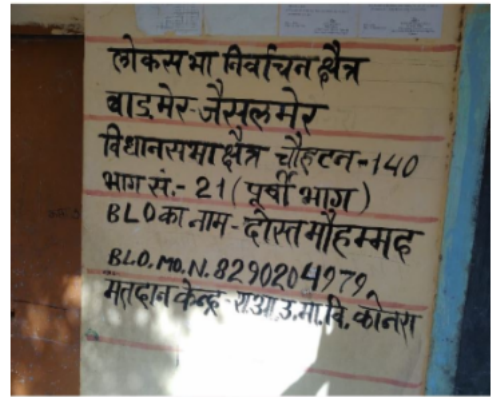 लोकसभा निर्वाचन क्षैत्र
बाड़मेर-जैसलमेर
विधानसभा क्षैत्र चौहटन-140
भाग सं.- 21 (पूर्वी भाग)
BLO का नाम - दोस्त मौहम्मद
BLO. MO. N. 8290204979
मतदान केन्द्र - रा.आ.उ.मा.वि. कोनरा